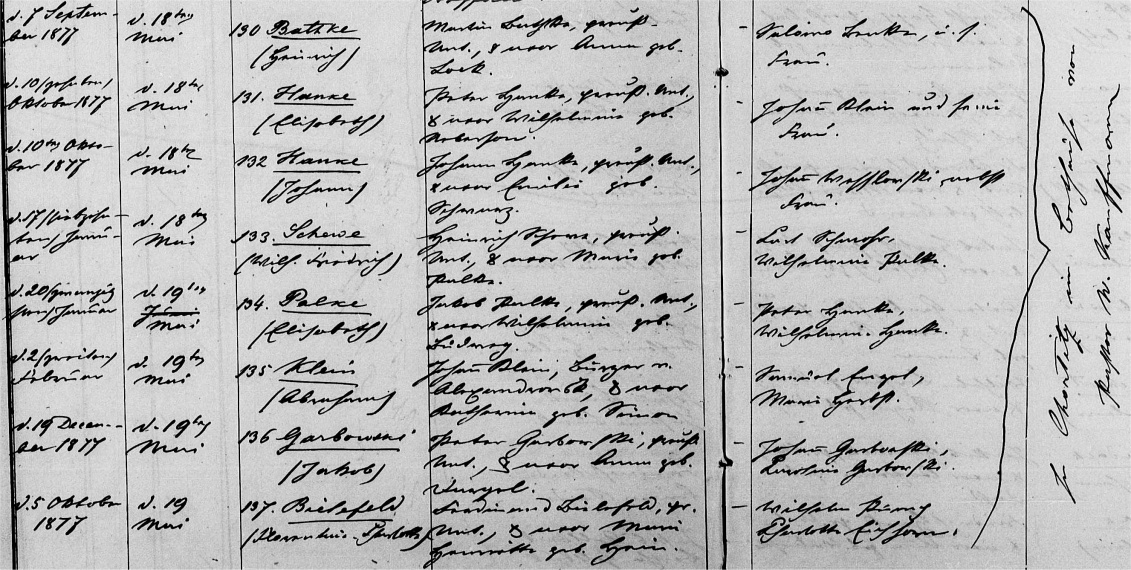 d. 7 Septem-
ber 1877
d. 18ten
Mai
130 Bathke
(Heinrich)
Martin Bathke, preuß.
Unt., & uxor Anna geb.
Lock.
- Salomo Hanke, u. s.
Frau.
d. 10/zehnten/
Oktober 1877
d. 18ten
Mai
131. Hanke
(Elisabeth)
Peter Hanke, preuß. Unt.,
& uxor Wilhelmine geb.
- Johann Klein und seine
Frau.
d. 10ten Okto-
ber 1877
d. 18ten
Mai
132 Hanke
(Johann)
Johann Hanke, preuß. Unt.,
& uxor Emilie geb.
Schwarz.
- Johann nebst
Frau.
d. 17/siebzehn-
ten/Janu-
ar
d. 18ten
Mai
133. Schewe
(Wilh. Friedrich)
Heinrich Schewe, preuß.
Unt., & uxor Maria geb.
Palke.
-
Wilhelmine Palke.
d. 20/zwanzig
sten/Januar
d. 19ten
Juni
Mai
134. Palke
(Elisabeth)
Jakob Palke, preuß. Unt.,
& uxor Wilhelmine geb.
Ludwig.
- Peter Hanke,
Wilhelmine Hanke.
d. 2/zweiten/
Februar
d. 19ten
Mai
135 Klein
(Abraham)
Johann Klein, Bürger v.
Alexandrowsk, & uxor
Katharina geb. Simon
- Samuel Engel,
Maria Herbst.
d. 19 Decem-
ber 1877
d. 19ten
Mai
136 Garbowski
(Jakob)
Peter Garbowski, preuß
Unt., & uxor Anna geb.
- Johann Garbowski,
Karoline Garbowski.
d. 5 Oktober
1877
d. 19
Mai
137. Bielefeld
(Florentine-Charlotte)
Ferdinand Bielefeld, pr.
Unt., & uxor Maria
Henriette geb. Hein.
- Wilhelm
Charlotte Eichhorn.
zu Chortitz im Bethause von
Pastor N. Kauffmann